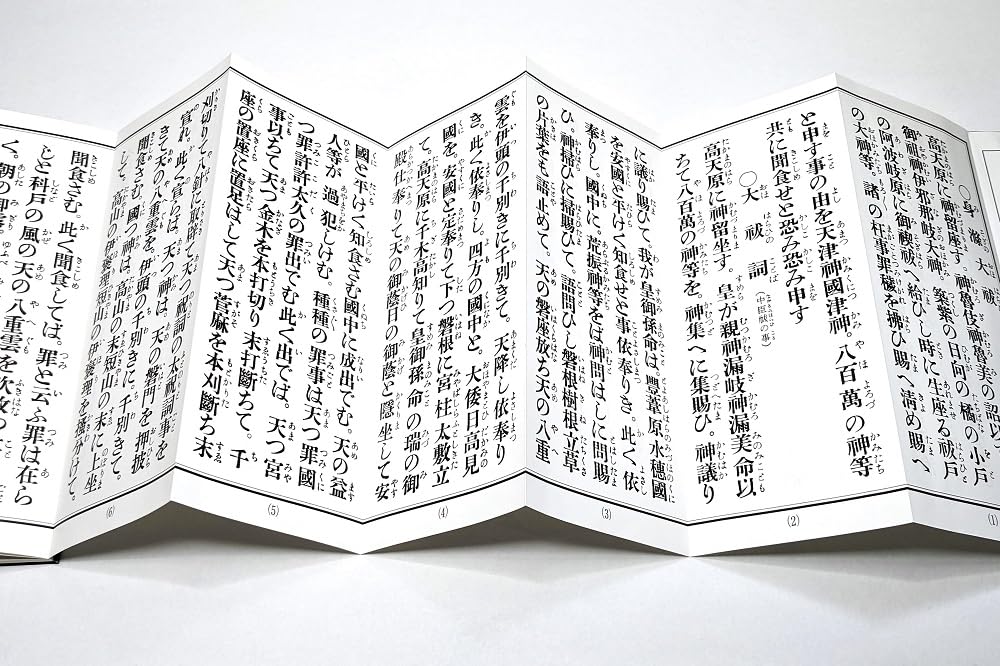 〇身滌大祓
高天原に神留座す。神魯伎神魯美の詔以
御祖神伊邪那岐大神。筑紫の日向の橘の小戸
の阿波岐原に御禊祓へ給ひし時に生座る祓戸
の大神等。諸の枉事罪穢を拂ひ賜へ淸め賜へ
(1)
と申す事の由を天津神國津神。八百萬の神等
共に聞食せと恐み恐み申す
〇大祓詞 (中臣祓の事)
高天原に神留坐す。皇が親神漏岐神漏美命以
ちて八百萬の神等を。神集へに集賜ひ。神議り
(2)
に議り賜ひて。我が皇御孫命は。豐葦原水穗國
を安國と平けく知食せと事依奉りき。此く依
奉りし。國中に。荒振神等をは神問はしに問賜
ひ。神掃ひに掃賜ひて。語問ひし磐根樹根立草
の片葉をも語止めて。天の磐座放ち天の八重
(3)
雲を伊頭の千別きに千別きて。天降し依奉り
き。此く依奉りし。四方の國中と。大倭日高見
國を。安國と定奉りて下つ磐根に宮柱太敷立
て。高天原に千木高知りて皇御孫命の瑞の御
殿仕奉りて天の御蔭日の御蔭と隱坐して安
(4)
國と平けく知食さむ國中に成出でむ。天の益
人等が過犯しけむ。種種の罪事は天つ罪國
つ罪許許太久の罪出でむ此く出では。天つ宮
事以ちて天つ金木を本打切り末打斷ちて。千
座の置座に置足はして天つ菅麻を本刈斷ち末
(5)
刈切りて八針に取辟て天つ祝詞の太祝詞事を
宣れ。此く宣らば。天つ神は。天の磐門を押披
きて天の八重雲を伊頭の千別きに。千別きて。
聞食さむ。國つ神は。高山の末短山の末に上坐
して。高山の伊褒理短山の伊褒理を搔分けて。
(6)
聞食さむ。此く聞食してば。罪と云ふ罪は在ら
じと科戸の風の天の八重雲を
く。朝の御霧